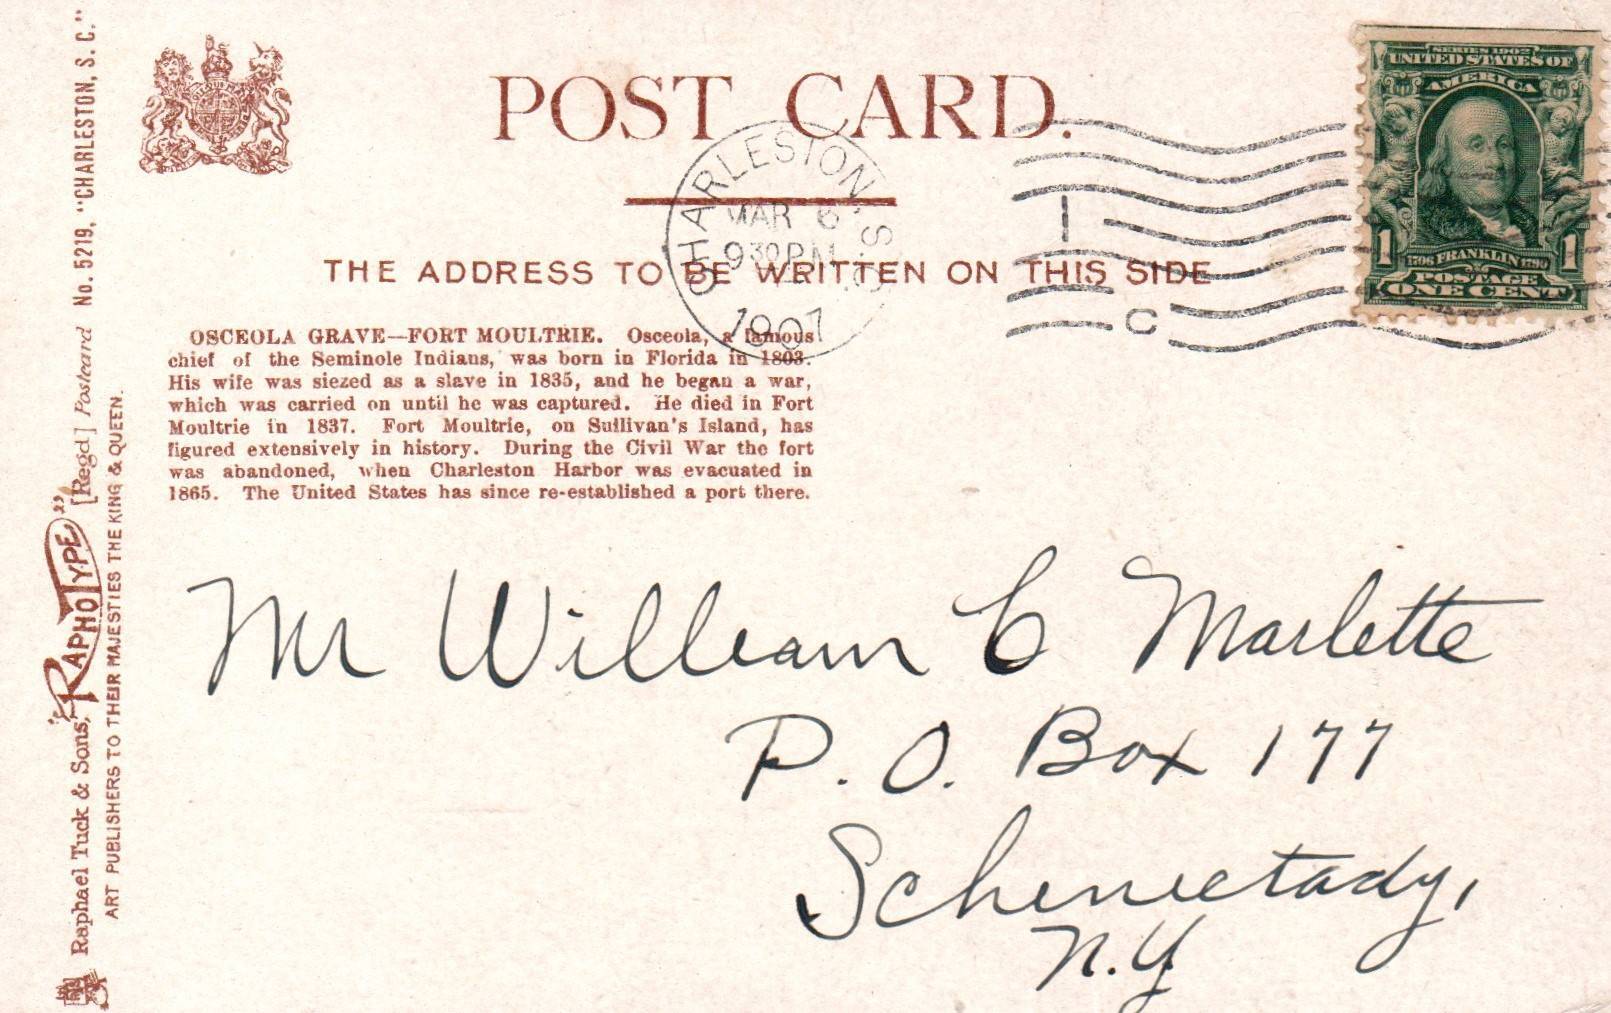 POST CARD.
THE ADDRESS TO BE WRITTEN ON THIS SIDE
CHARLESTON, S.C.
MAR 6
930 PM
1907
1
C
SERIES 1902
UNITED STATES OF
AMERICA
1 1
1706 FRANKLIN 1790
POSTAGE
ONE CENT
OSCEOLA GRAVE—FORT MOULTRIE. Osceola, a famous
chief of the Seminole Indians, was born in Florida in 1803.
His wife was siezed as a slave in 1835, and he began a war,
which was carried on until he was captured. He died in Fort
Moultrie in 1837. Fort Moultrie, on Sullivan's Island, has
figured extensively in history. During the Civil War the fort
was abandoned, when Charleston Harbor was evacuated in
1865. The United States has since re-established a port there.
Mr William C Marlette
P. O. Box 177
Schenectady,
N.Y
Raphael Tuck & Sons' "RAPHOTYPE" [Regd] Postcard No. 5219, "CHARLESTON, S. C."
ART PUBLISHERS TO THEIR MAJESTIES THE KING & QUEEN.